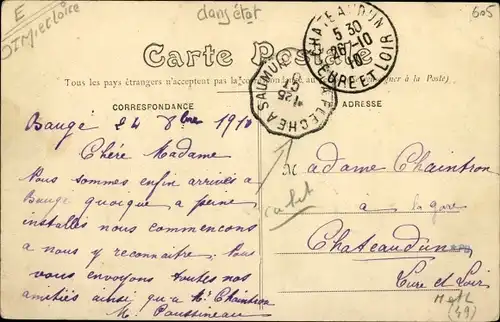 E
OTM et Loire
dans état
605
Carte Postale
Tous les pays étrangers n'acceptent pas la correspondance au
(à la Poste)
CORRESPONDANCE
ADRESSE
CHATEAUDUN
5 30
26-10
10
EURE-ET-LOIR
LA FLECHE A SAUMUR
25
Baugé 24 8bre 1910
Chère Madame
Nous sommes enfin arrivés a
Baugé quoique a peine
installés nous commençons
a nous y reconnaitre; Nous
vous envoyons toutes nos
amitiés ainsi qu'a Mr Chaintron
M. Poussineau
Madame Chaintron
à la gare
Chateaudun
Eure et Loir
cachet
M et L
(49)